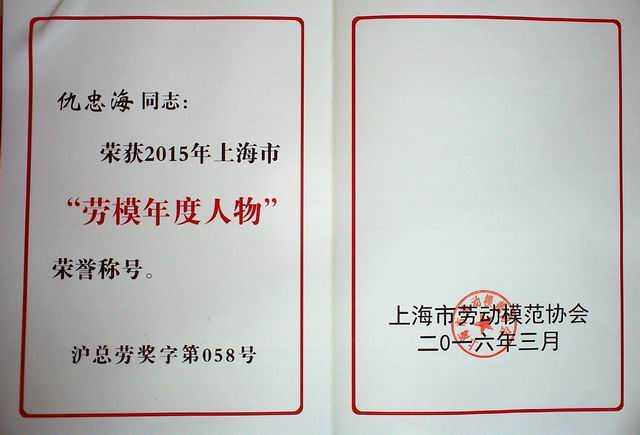 仇忠海同志：
荣获2015年上海市
“劳模年度人物”
荣誉称号。
沪总劳奖字第058号
上海市劳动模范协会
二0一六年三月